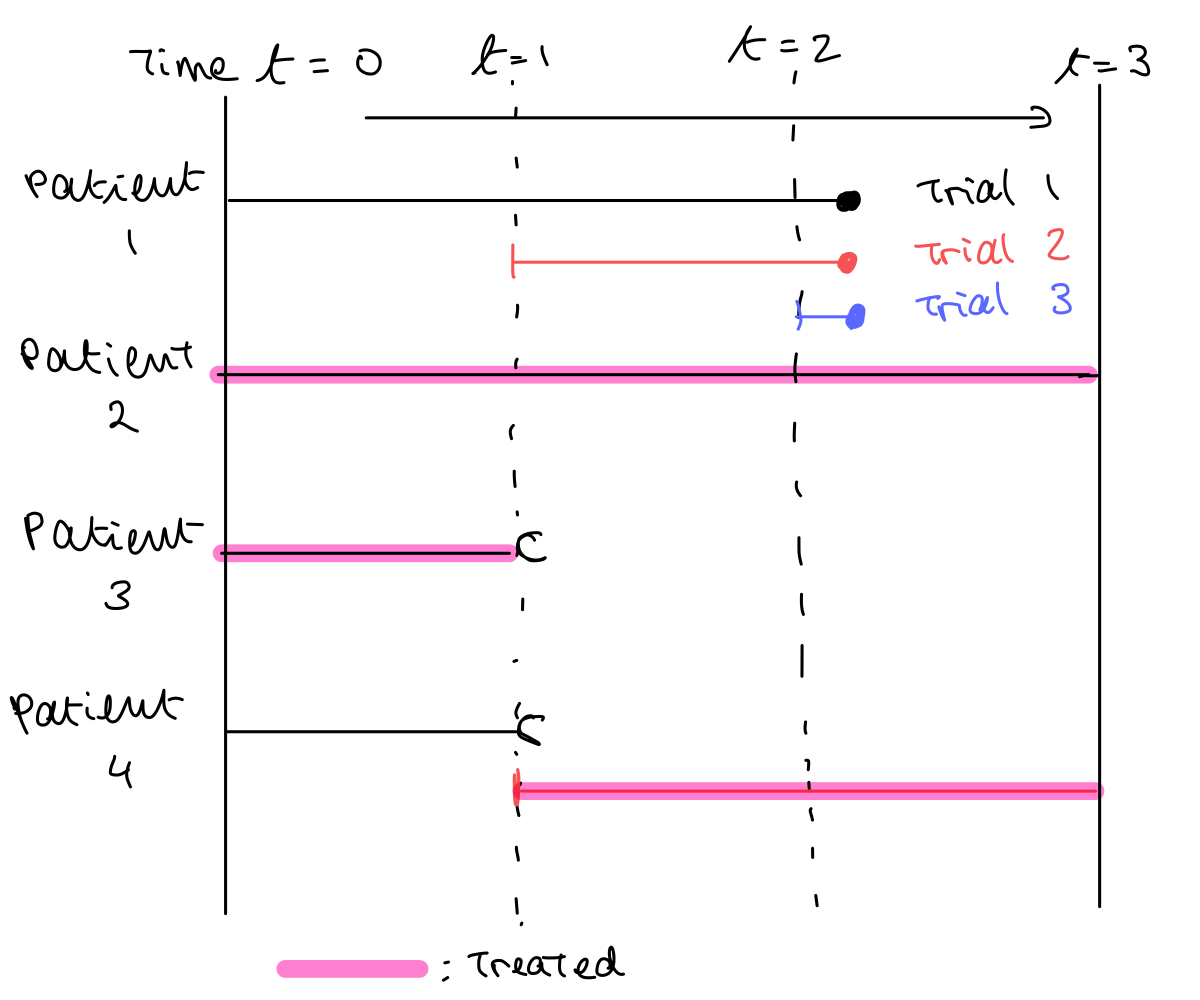 Time t = 0 t=1 t=2 t=3
Patient 1
Trial 1
Trial 2
Trial 3
Patient 2
Patient 3
C
Patient 4
C
: Treated